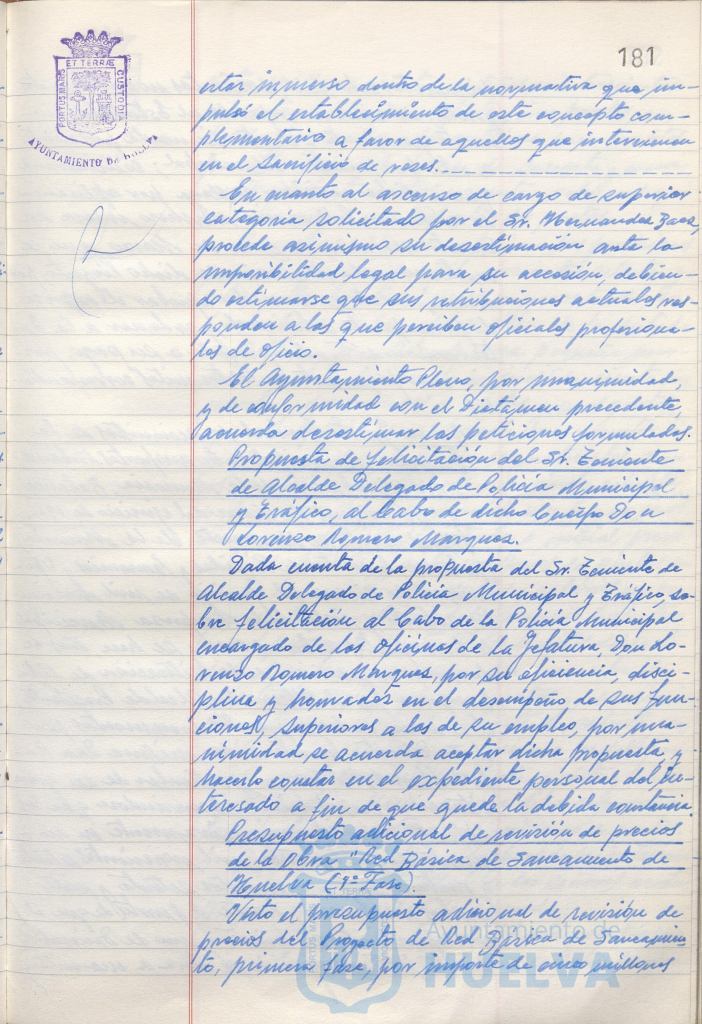 181
PORTUS MARIS ET TERRÆ CUSTODIA
AYUNTAMIENTO DE HUELVA
estar inmerso dentro de la normativa que im-
pulsó el establecimiento de este concepto com-
plementario a favor de aquellos que intervienen
en el sacrificio de reses.
En cuanto al ascenso de cargo de superior
categoría solicitado por el Sr. Hernandez
procede asimismo su desestimación ante la
imposibilidad legal para su accesión, debien-
do estimarse que sus retribuciones actuales res-
ponden a las que perciben oficiales profesiona-
les de oficio.
El Ayuntamiento Pleno, por unanimidad,
y de conformidad con el Dictámen precedente,
acuerda desestimar las peticiones formuladas.
Propuesta de felicitación del Sr. Teniente
de Alcalde Delegado de Policía Municipal
y Tráfico, al Cabo de dicho Cuerpo Don
Lorenzo Romero Marquez.
Dada cuenta de la propuesta del Sr. Teniente de
Alcalde Delegado de Policía Municipal y Tráfico, so-
bre felicitación al Cabo de la Policía Municipal
encargado de las oficinas de la Jefatura, Don Lo-
renzo Romero Marquez, por su eficiencia, disci-
plina y honradez en el desempeño de sus fun-
ciones, superiores a las de su empleo, por una-
nimidad se acuerda aceptar dicha propuesta y
hacerlo constar en el expediente personal del in-
teresado a fin de que quede la debida constancia.
Presupuesto adicional de revisión de precios
de la Obra "Red Básica de Saneamiento de
Huelva (1ª Fase).
Visto el presupuesto adicional de revisión de
precios del Proyecto de Red Básica de Saneamien-
to, primera Fase, por importe de cinco millones
Ayuntamiento de
HUELVA